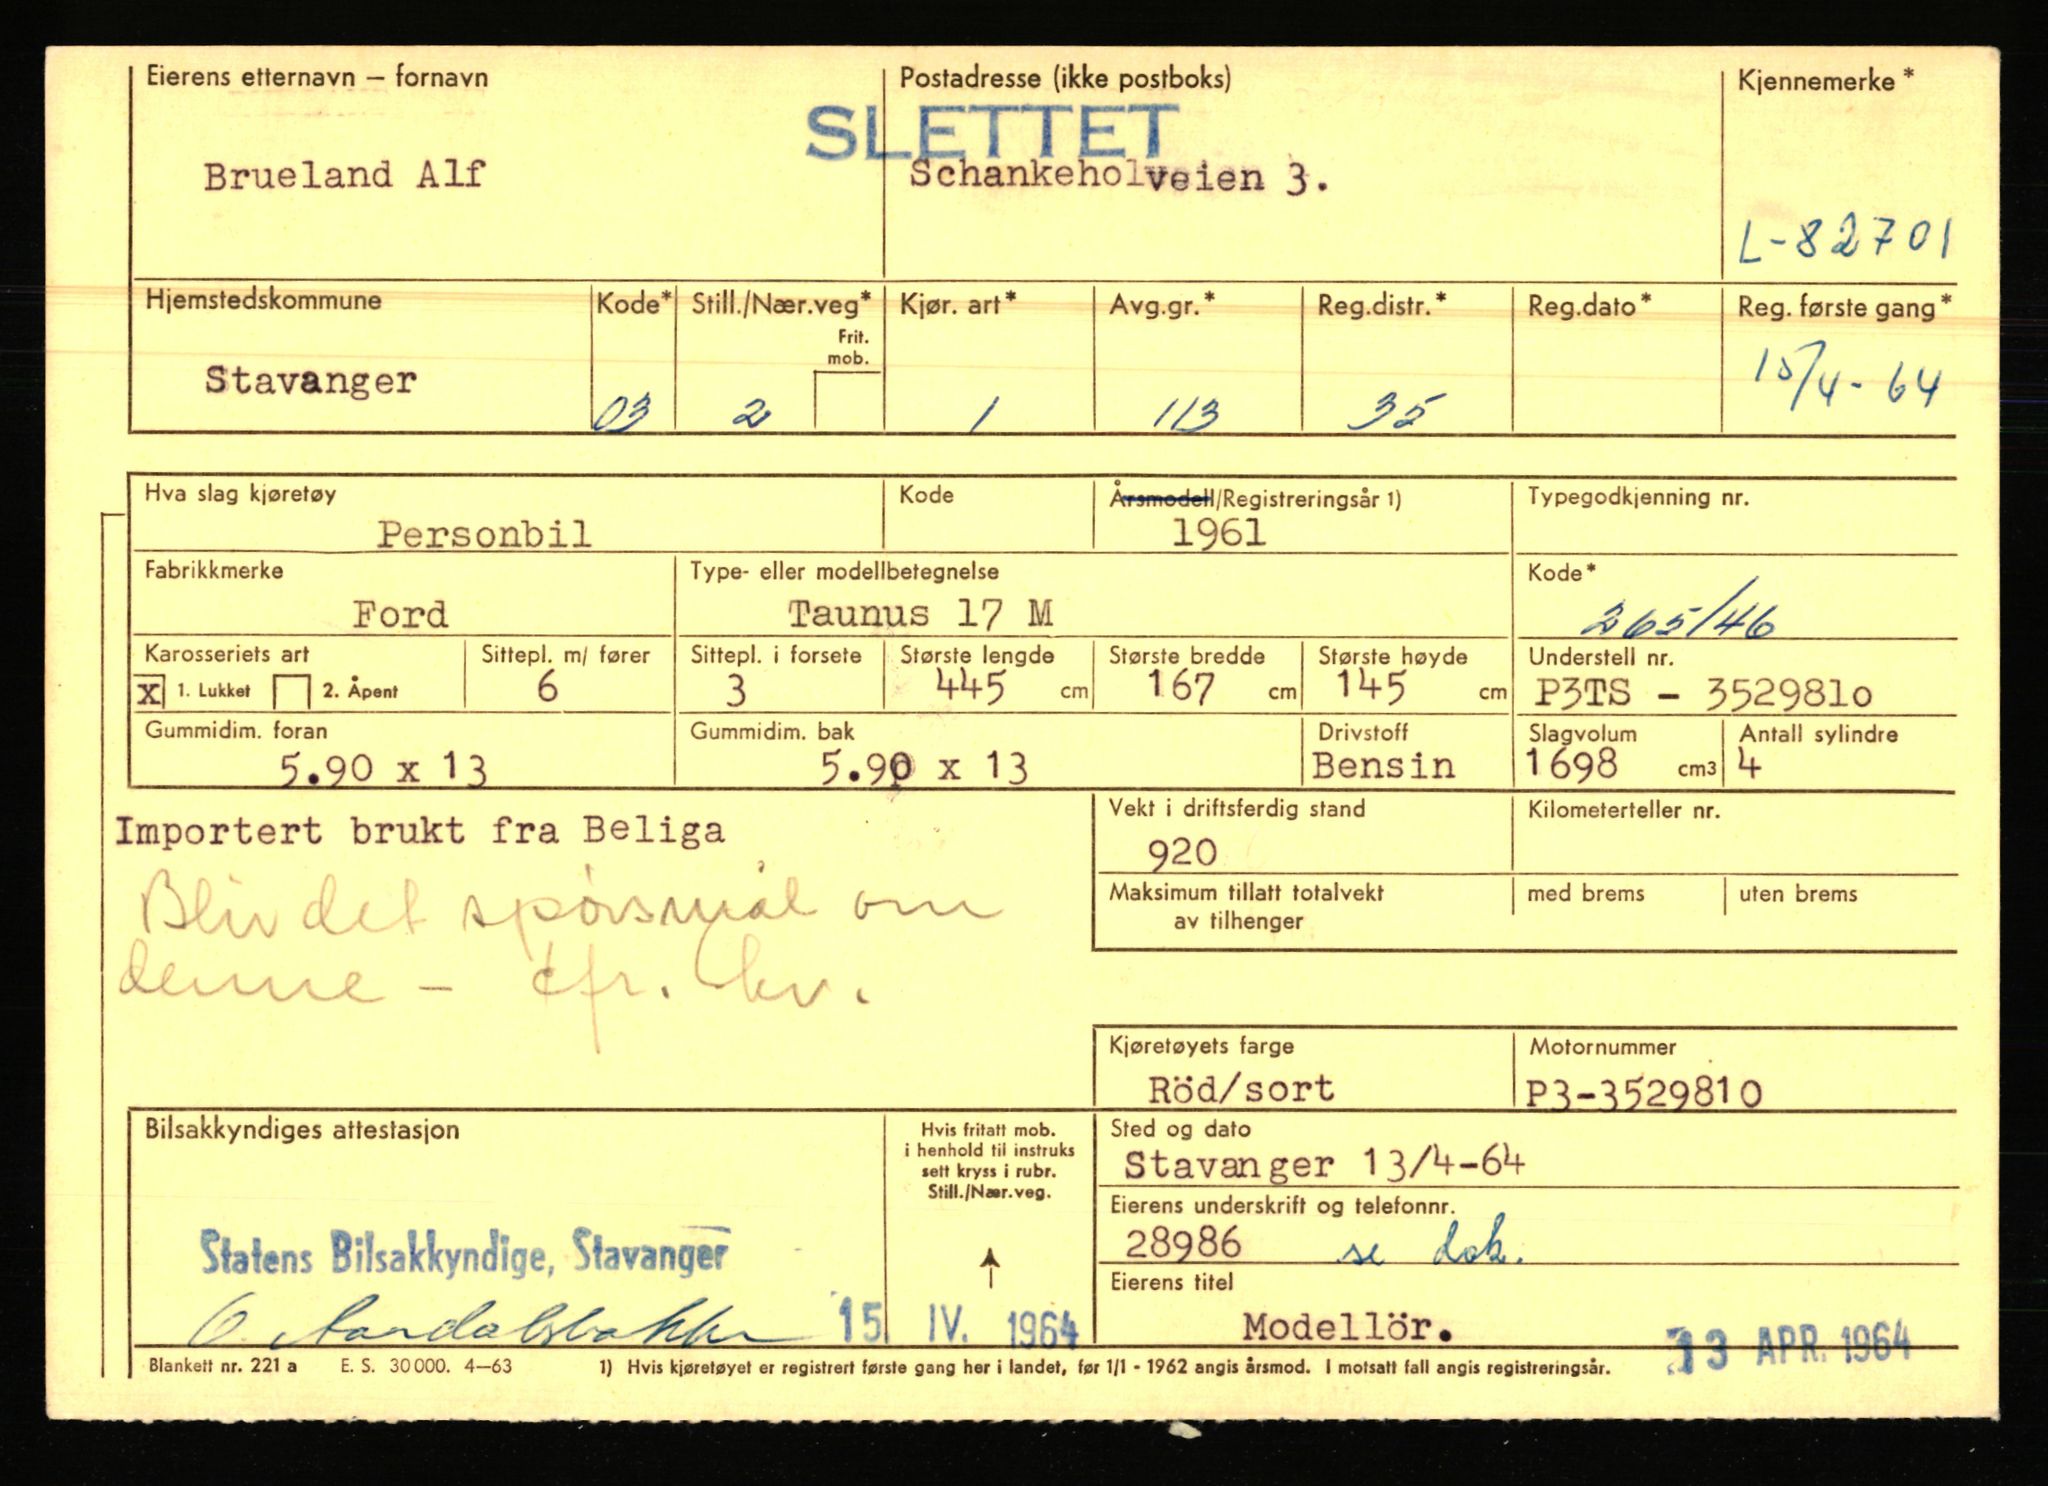 Eierens etternavn – fornavn
Postadresse (ikke postboks)
Kjennemerke*
SLETTET
Brueland Alf
Schankeholveien 3.
L-82701
Hjemstedskommune
Kode*
Still./Nær.veg*
Kjør. art*
Avg.gr.*
Reg.distr.*
Reg.dato*
Reg. første gang*
Frit.
mob.
Stavanger
03
2
1
113
35
15/4-64
Hva slag kjøretøy
Kode
Årsmodell/Registreringsår 1)
Typegodkjenning nr.
Personbil
1961
Fabrikkmerke
Type- eller modellbetegnelse
Kode*
Ford
Taunus 17 M
265/46
Karosseriets art
Sittepl. m/ fører
Sittepl. i forsete
Største lengde
Største bredde
Største høyde
Understell nr.
x 1. Lukket
2. Åpent
6
3
445 cm
167 cm
145 cm
P3TS - 3529810
Gummidim. foran
Gummidim. bak
Drivstoff
Slagvolum
Antall sylindre
5.90 x 13
5.90 x 13
Bensin
1698 cm3
4
Importert brukt fra Beliga
Vekt i driftsferdig stand
Kilometerteller nr.
920
Blir det spørsmål om
denne - cfr. hv.
Maksimum tillatt totalvekt
av tilhenger
med brems
uten brems
Kjøretøyets farge
Motornummer
Röd/sort
P3-3529810
Bilsakkyndiges attestasjon
Hvis fritatt mob.
i henhold til instruks
sett kryss i rubr.
Still./Nær.veg.
Sted og dato
Stavanger 13/4-64
Eierens underskrift og telefonnr.
28986 se dok.
Statens Bilsakkyndige, Stavanger
Eierens titel
15. IV. 1964
Modellör.
13 APR. 1964
Blankett nr. 221 a E. S. 30 000. 4–63
1) Hvis kjøretøyet er registrert første gang her i landet, før 1/1 - 1962 angis årsmod. I motsatt fall angis registreringsår.